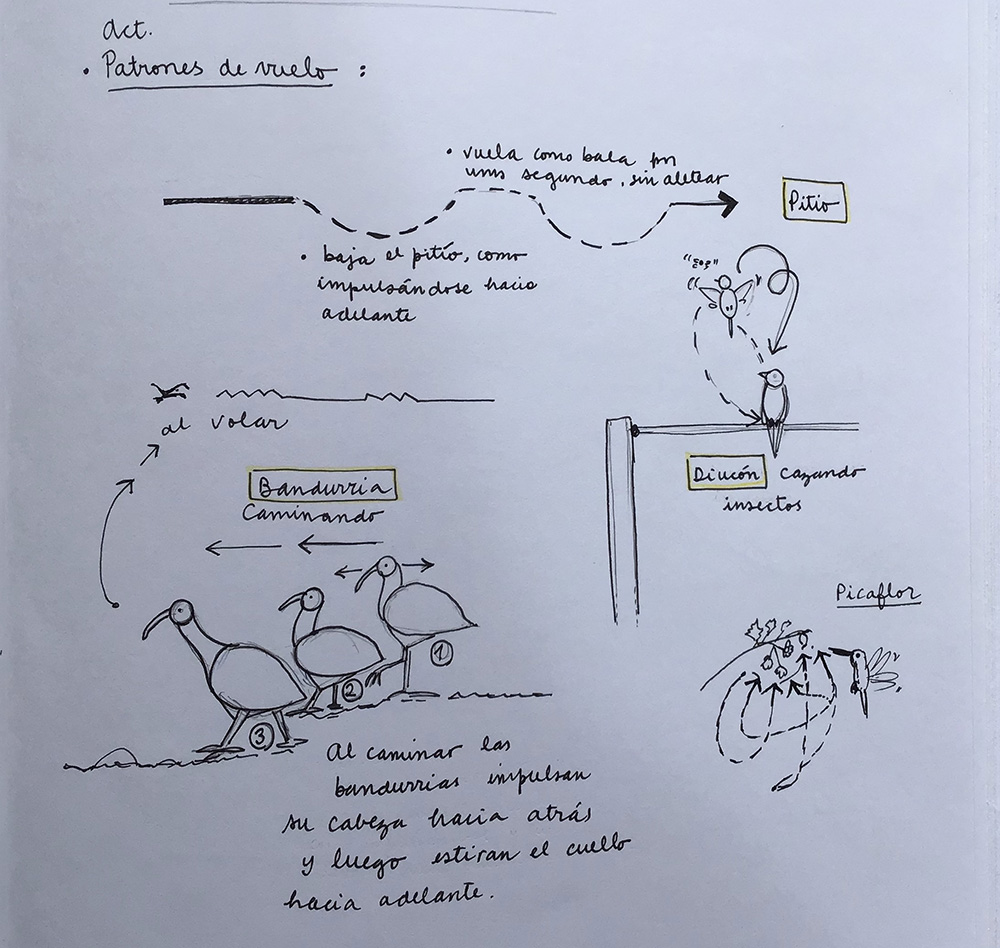 Act.
• Patrones de vuelo :
• vuela como bala por
unos segundo, sin aletear
Pitio
• baja el pitío, como
impulsándose hacia
adelante
al volar
Bandurria
Caminando
Diucón cazando
insectos
Picaflor
1
2
3
Al caminar las
bandurrias impulsan
su cabeza hacia atrás
y luego estiran el cuello
hacia adelante.